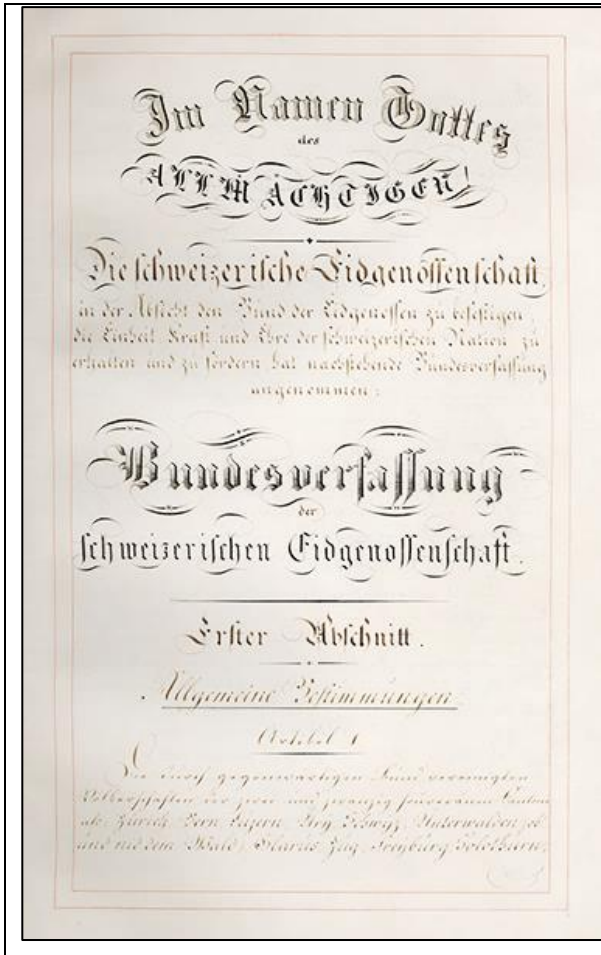 Im Namen Gottes
des
ALLMÄCHTIGEN!
Die schweizerische Eidgenossenschaft,
in der Absicht den Bund der Eidgenossen zu befestigen,
die Einheit Kraft und Ehre der schweizerischen Nation zu
erhalten und zu fördern, hat nachstehende Bundesverfassung
angenommen:
Bundesverfassung
der
schweizerischen Eidgenossenschaft.
Erster Abschnitt.
Allgemeine Bestimmungen.
Artikel 1
Die durch gegenwärtigen Bund vereinigten
Völkerschaften der zwei und zwanzig souveränen
als: Zürich, Bern, Luzern, Ury, Schwyz, Unterwalden, ob
und nid dem Wald, Glarus, Zug, Freyburg, Solothurn,